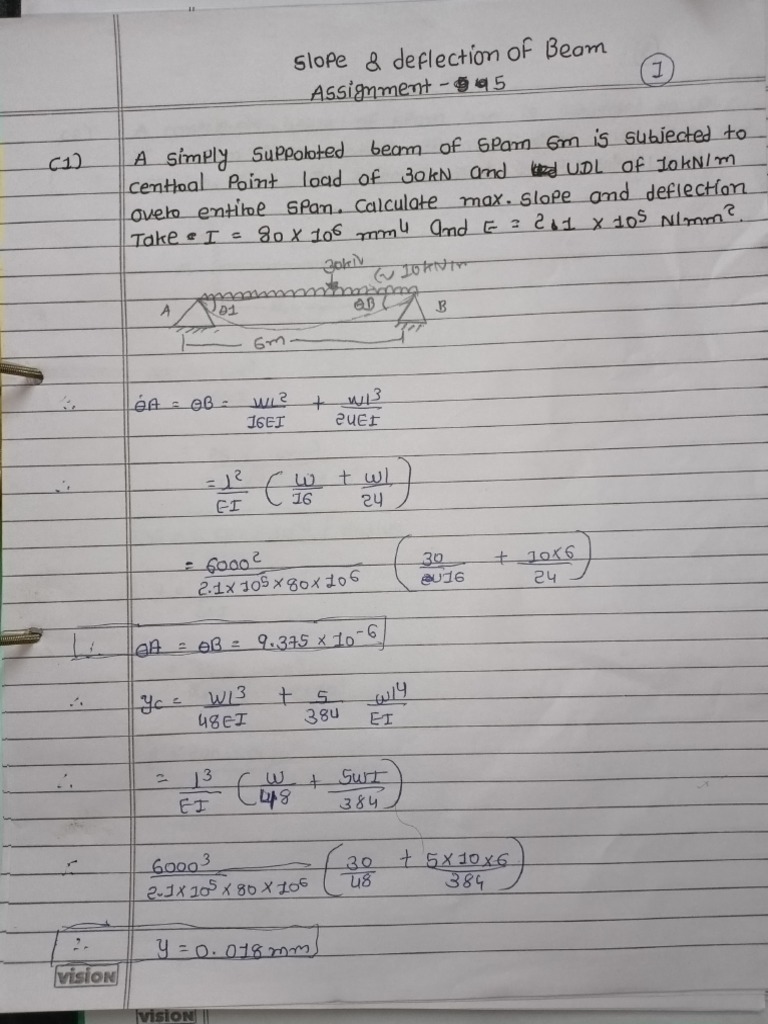 Slope & deflection of Beam
Assignment - 5
1
(1) A simply Suppoloted beam of Span 6m is Subjected to
centhoal Point load of 30kN and UDL of 10kN/m
overo entiroe Span. Calculate max. slope and deflection
Take I = 80 × 10⁶ mm⁴ and E = 2.1 × 10⁵ N/mm².
30kN
10kN/m
A θ1 θB B
6m
∴ θA = θB = Wl²/16EI + wl³/24EI
∴ = l²/EI (W/16 + wl/24)
= 6000²/2.1×10⁵×80×10⁶ (30/16 + 10×6/24)
∴ θA = θB = 9.375 × 10⁻⁶
∴ yc = Wl³/48EI + 5/384 wl⁴/EI
∴ = l³/EI (W/48 + 5wl/384)
6000³/2.1×10⁵×80×10⁶ (30/48 + 5×10×6/384)
∴ y = 0.018mm
VISION
VISION